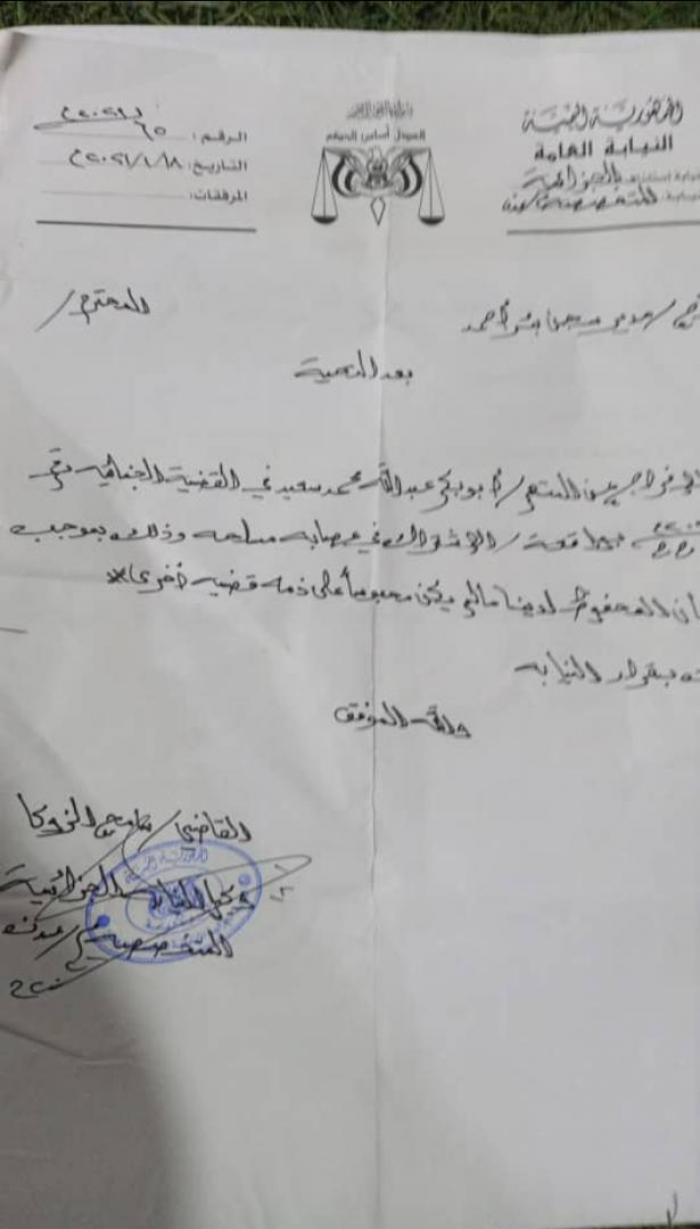 الجمهورية اليمنية
النيابة العامة
الجزائية
المتخصصة عدن
العدل أساس الحكم
الرقم: ٦٥ / ٢٠٢١م
التاريخ: ١٨ / ١ / ٢٠٢١م
المرفقات:
مدير سجن بئر أحمد المحترم/
بعد التحية
الإفراج عن المتهم/ أبوبكر عبدالله محمد سعيد في القضية الجنائية رقم
واقعة/ الاشتراك في عصابه مسلحه وذلك بموجب
المحفوظ لدينا مالم يكن محبوساً على ذمه قضيه أخرى*
بقرار النيابه
والله الموفق
القاضي/
وكيل النيابة الجزائية
المتخصصه م/ عدن